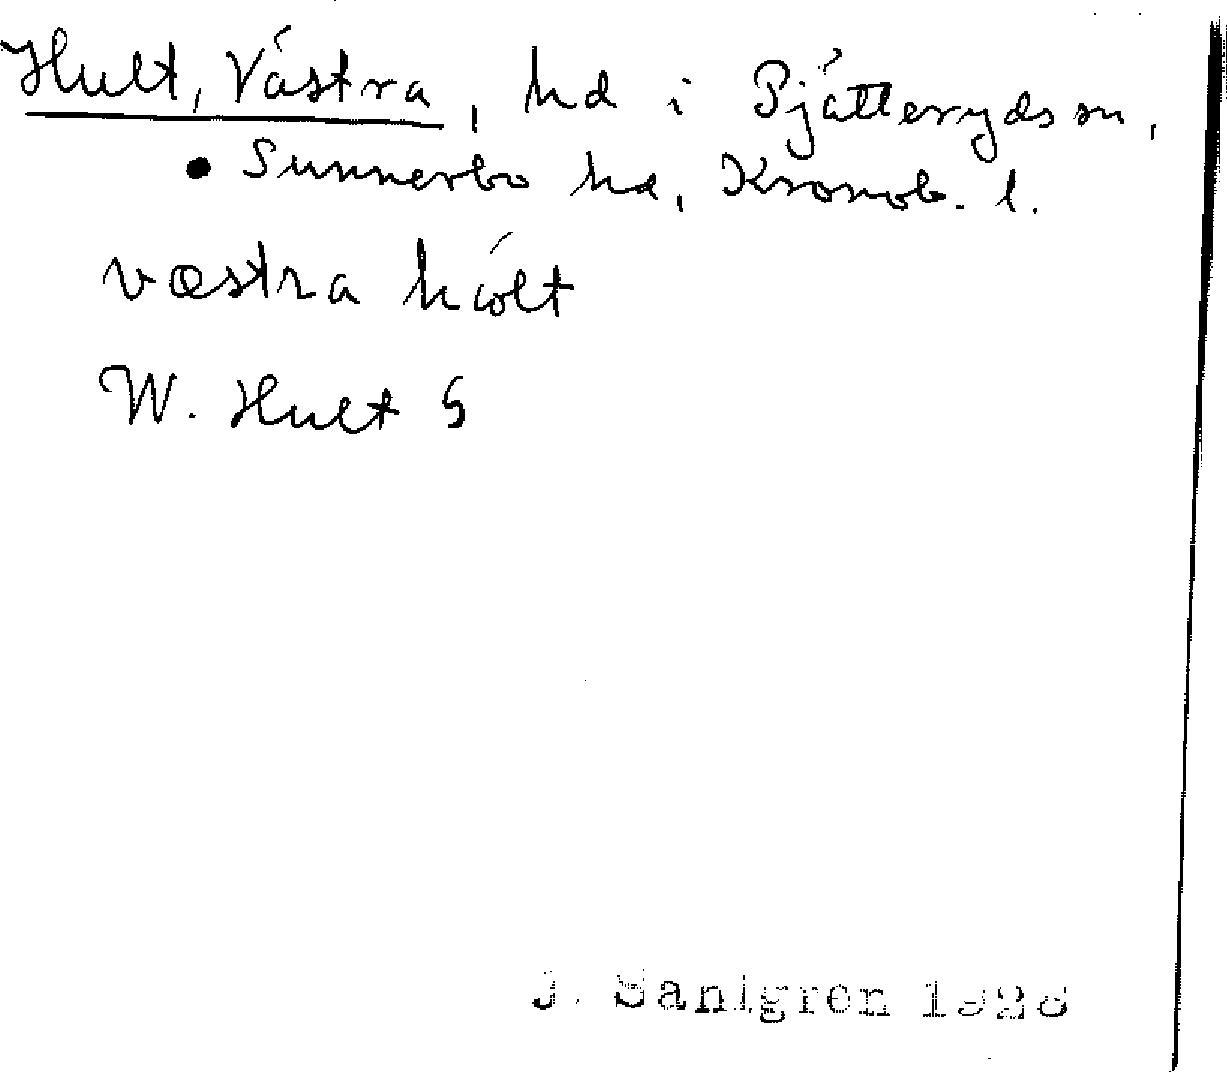 Hult, Västra, hd i Pjätterydssn,
Sunnerbo hd, Kronob. l.
væstra hólt
W. Hult G
J. Sahlgren